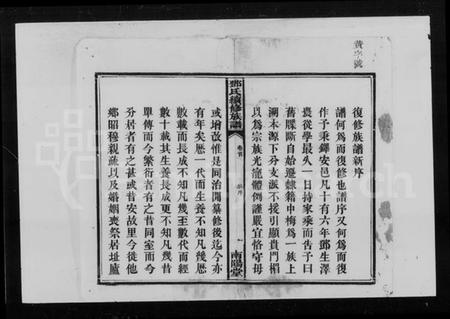 黃字號
復修族譜新序
譜何為而復修也譜序又何為而復
作子秉鐸安邑凡十有六年鄧生澤
袠從學最久一日持家乘而告予曰
舊牒斷自始遷隸籍中梅為一族上
溯木源下分支派不援引顯貴門楣
以為宗族光寵體例謹嚴宜恪守毋
鄧氏續修族譜
卷首
新序
一
南陽堂
或增改惟是同治間纂修後迄今亦
有年矣歷一代而生養不知凡幾歷
數載而長成不知凡幾至數代而經
數十載其生養長成更不知凡幾昔
單傳而今繁衍者有之昔同室而今
分居者有之甚或昔安故里今徙他
鄉昭穆親疏以及婚姻喪祭居址廬